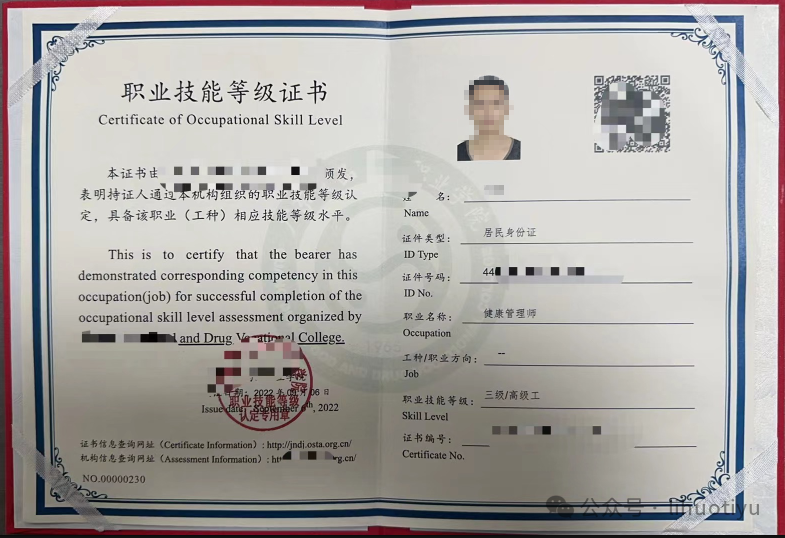 职业技能等级证书
Certificate of Occupational Skill Level
本证书由 颁发，
表明持证人通过本机构组织的职业技能等级认
定，具备该职业（工种）相应技能等级水平。
This is to certify that the bearer has
demonstrated corresponding competency in this
occupation(job) for successful completion of the
occupational skill level assessment organized by
and Drug Vocational College.
日期：2022 年 月 06 日
Issue date September 6th, 2022
职业技能等级
认定专用章
证书信息查询网址（Certificate Information）: http://jndj.osta.org.cn/
机构信息查询网址（Assessment Information）: rg.cn/
NO.00000230
姓 名：
Name
证件类型： 居民身份证
ID Type
证件号码： 44
ID No.
职业名称： 健康管理师
Occupation
工种/职业方向： --
Job
职业技能等级： 三级/高级工
Skill Level
证书编号：
Certificate No.
公众号 · lihuotiyu